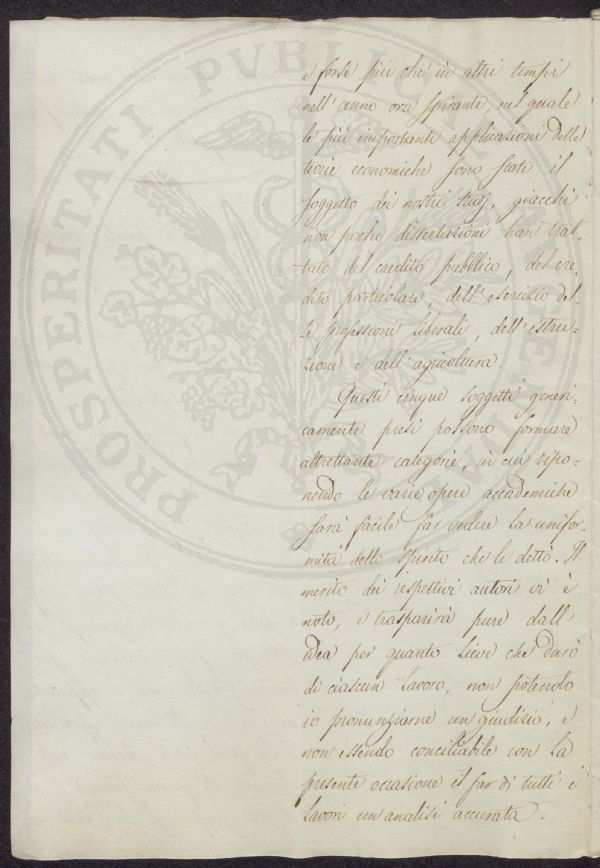 e forse più che in altri tempi
nell'anno ora spirante nel quale
le più importante applicazioni delle
teorie economiche sono state il
soggetto dei nostri studj, giacchè
non poche dissertazioni han trat-
tato del credito pubblico, del cre-
dito particolare, dell'esercizio del-
le professioni liberali, dell'istru-
zione e dell'agricoltura.
Questi cinque soggetti generi-
camente presi possono formare
altrettante categorie, in cui ripo-
nendo le varie opere accademiche
sarà facile far vedere la unifor-
mità dello spirito che le dettò. Il
merito dei respettivi autori vi è
noto, e trasparirà pure dall'
idea per quanto lieve che darò
di ciascun lavoro, non potendo
io pronunziarne un giudizio, e
non essendo conciliabile con la
presente occasione il far di tutti i
lavori un analisi accurata.
PROSPERITATI PVBLICAE